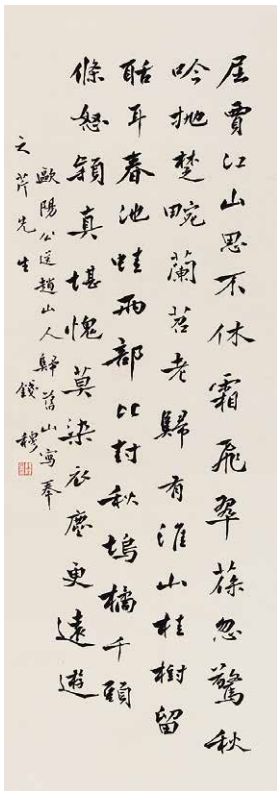 屈賈江山思不休霜飛翠葆忽驚秋
吟抛楚畹蘭苕老歸有淮山桂樹留
聒耳春池蛙兩部比封秋塢橘千頭
鯈怒穎真堪愧莫染衣塵更遠遊
歐陽公送趙山人歸舊山寫奉
之芹先生
錢穆